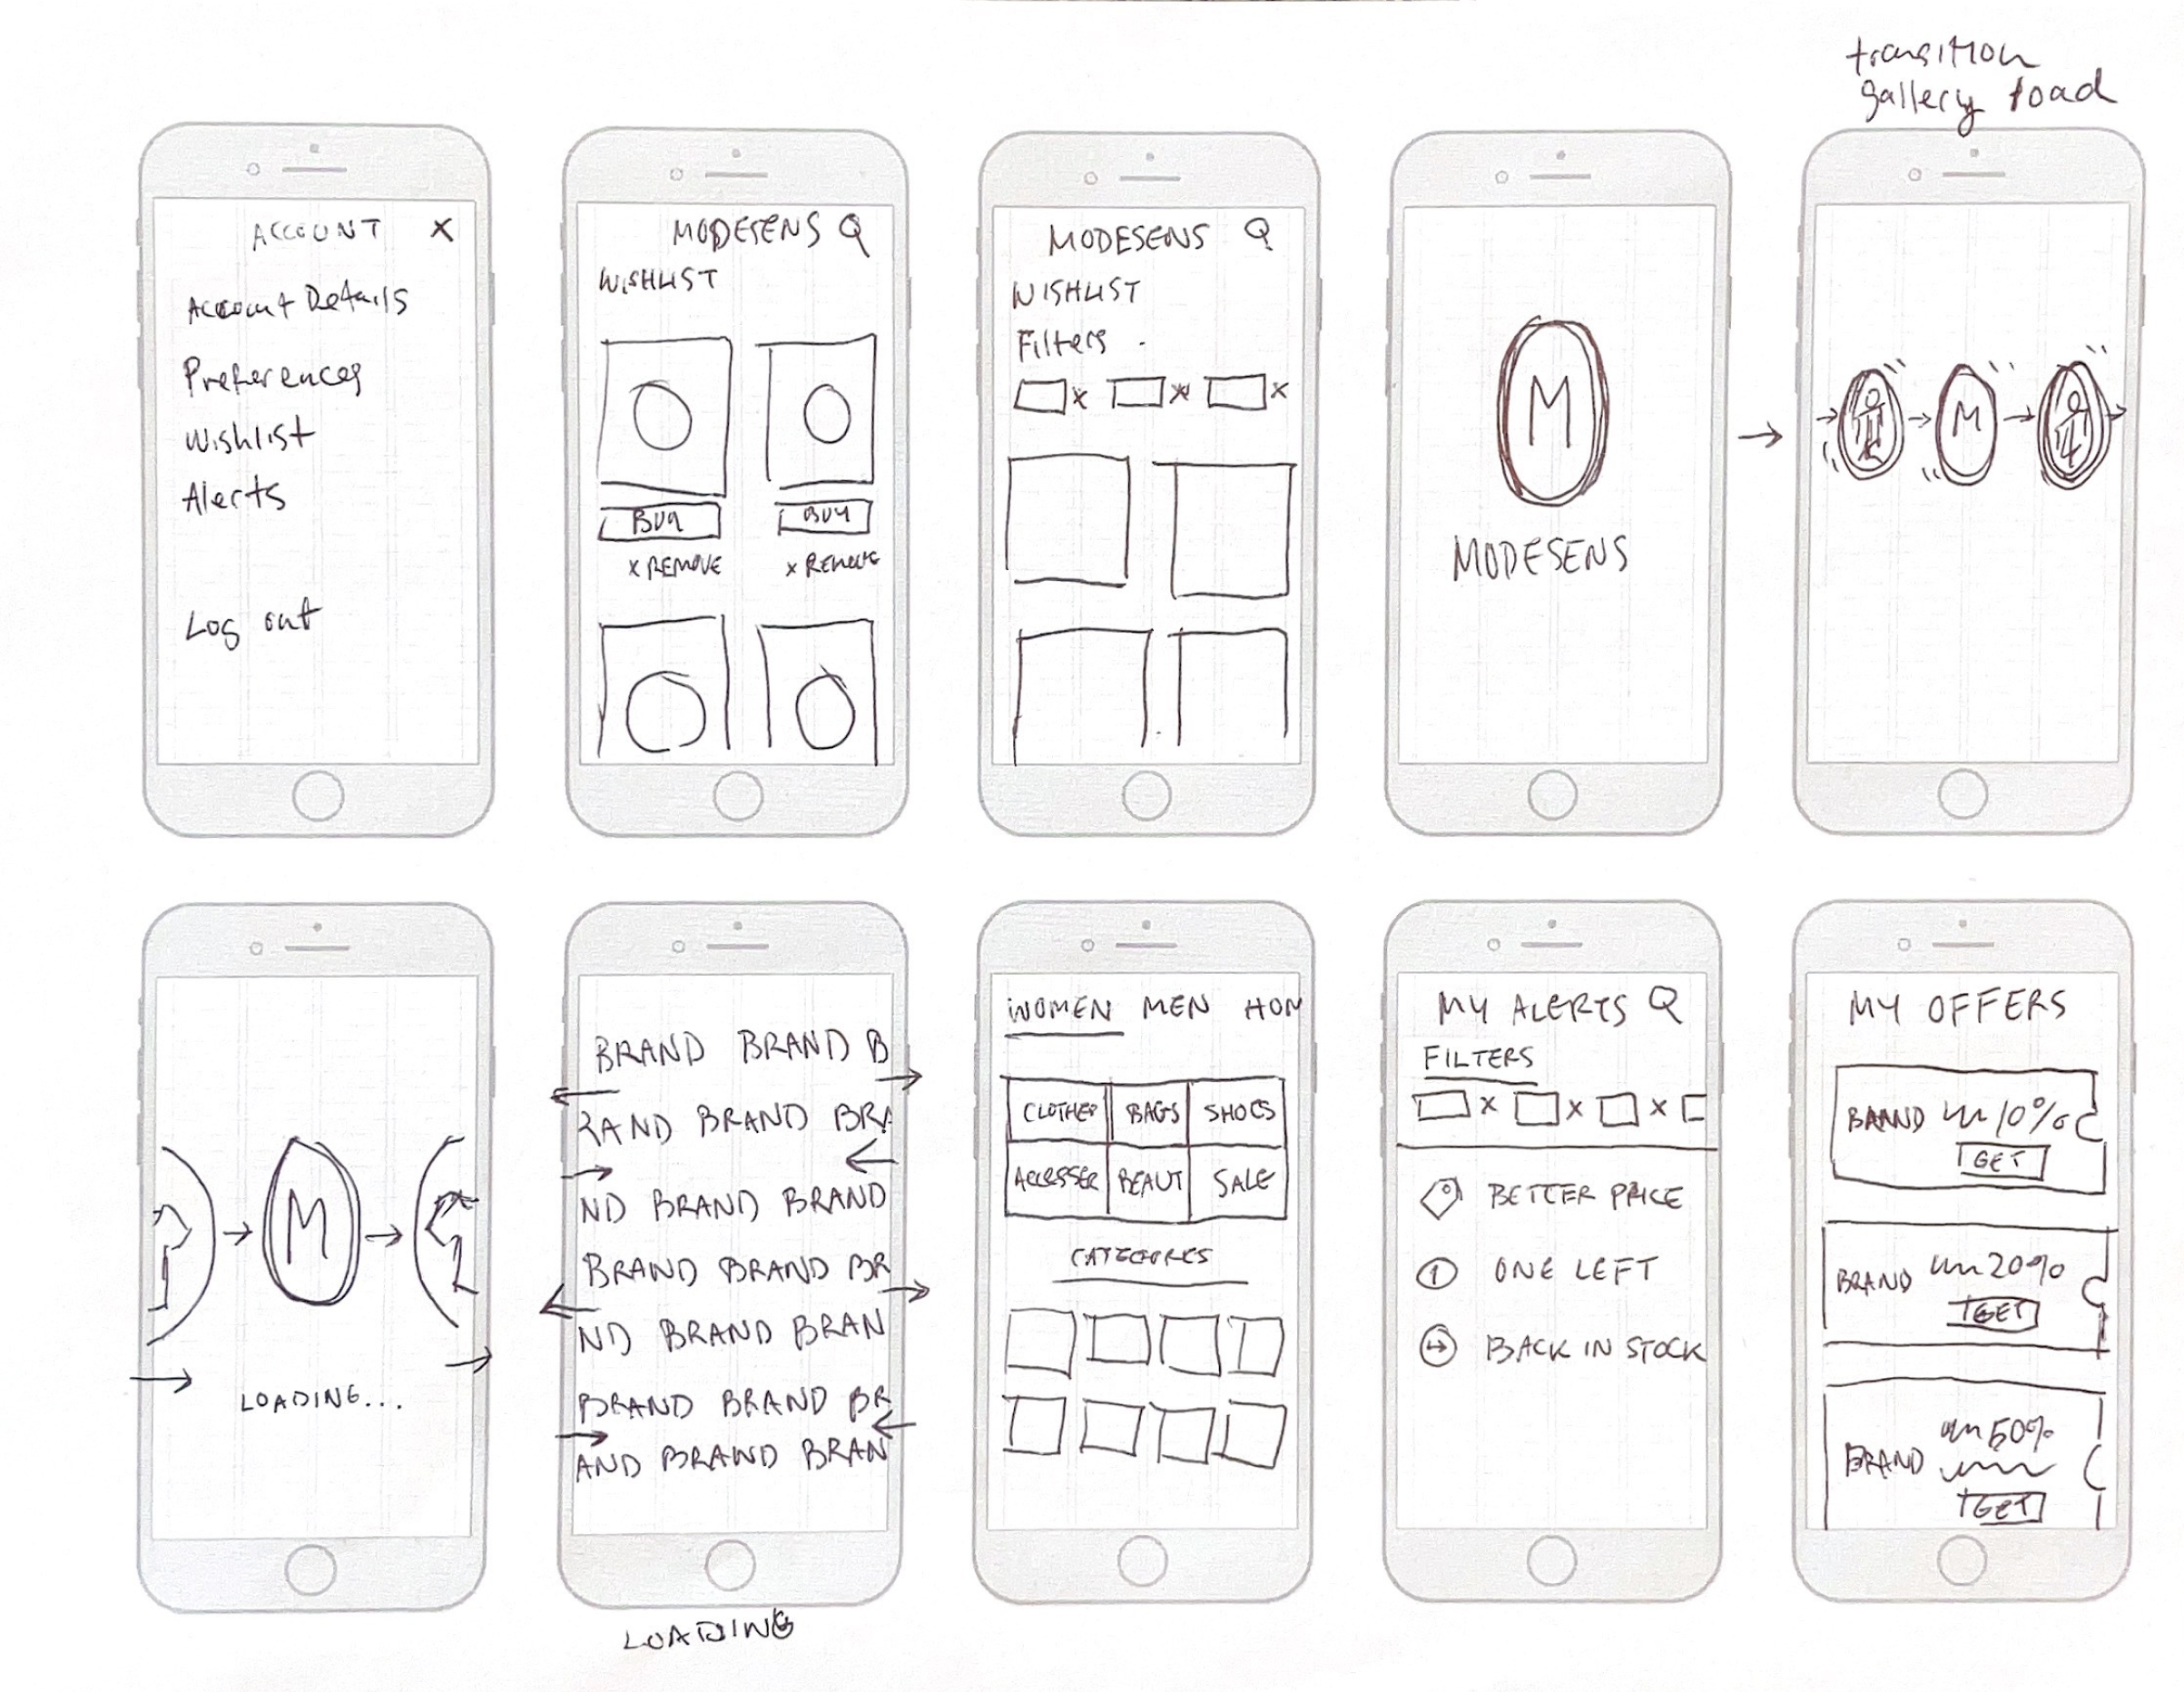 transition
gallery load
ACCOUNT X
Account Details
Preferences
Wishlist
Alerts
Log out
MODESENS
WISHLIST
BUY BUY
x REMOVE x REMOVE
MODESENS
WISHLIST
Filters
x x x
M
MODESENS
M
M
LOADING...
BRAND BRAND B
RAND BRAND BRA
ND BRAND BRAND
BRAND BRAND BR
ND BRAND BRAN
BRAND BRAND BR
AND BRAND BRAN
LOADING
WOMEN MEN HOM
CLOTHES BAGS SHOES
ACCESSER BEAUT SALE
CATEGORIES
MY ALERTS
FILTERS
x x x
BETTER PRICE
1 ONE LEFT
BACK IN STOCK
MY OFFERS
BRAND 10%
GET
BRAND 20%
GET
BRAND 50%
GET